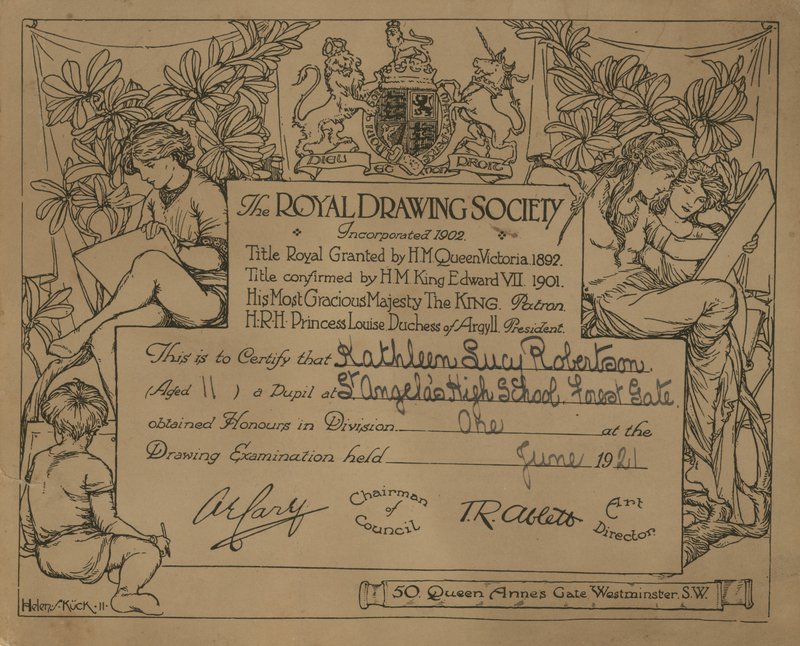 DIEU ET MON DROIT
The ROYAL DRAWING SOCIETY
Incorporated 1902.
Title Royal Granted by H.M Queen Victoria. 1892.
Title confirmed by H M King Edward VII. 1901.
His Most Gracious Majesty The KING. Patron.
H.R.H. Princess Louise Duchess of Argyll. President.
This is to Certify that Kathleen Lucy Robertson.
(Aged 11 ) a Pupil at St Angela's High School. Forest Gate.
obtained Honours in Division One at the
Drawing Examination held June 1921
Chairman of Council
T.R. Ablett
Art Director.
Helen S. Kück · 11 ·
50, Queen Anne's Gate Westminster. S.W.